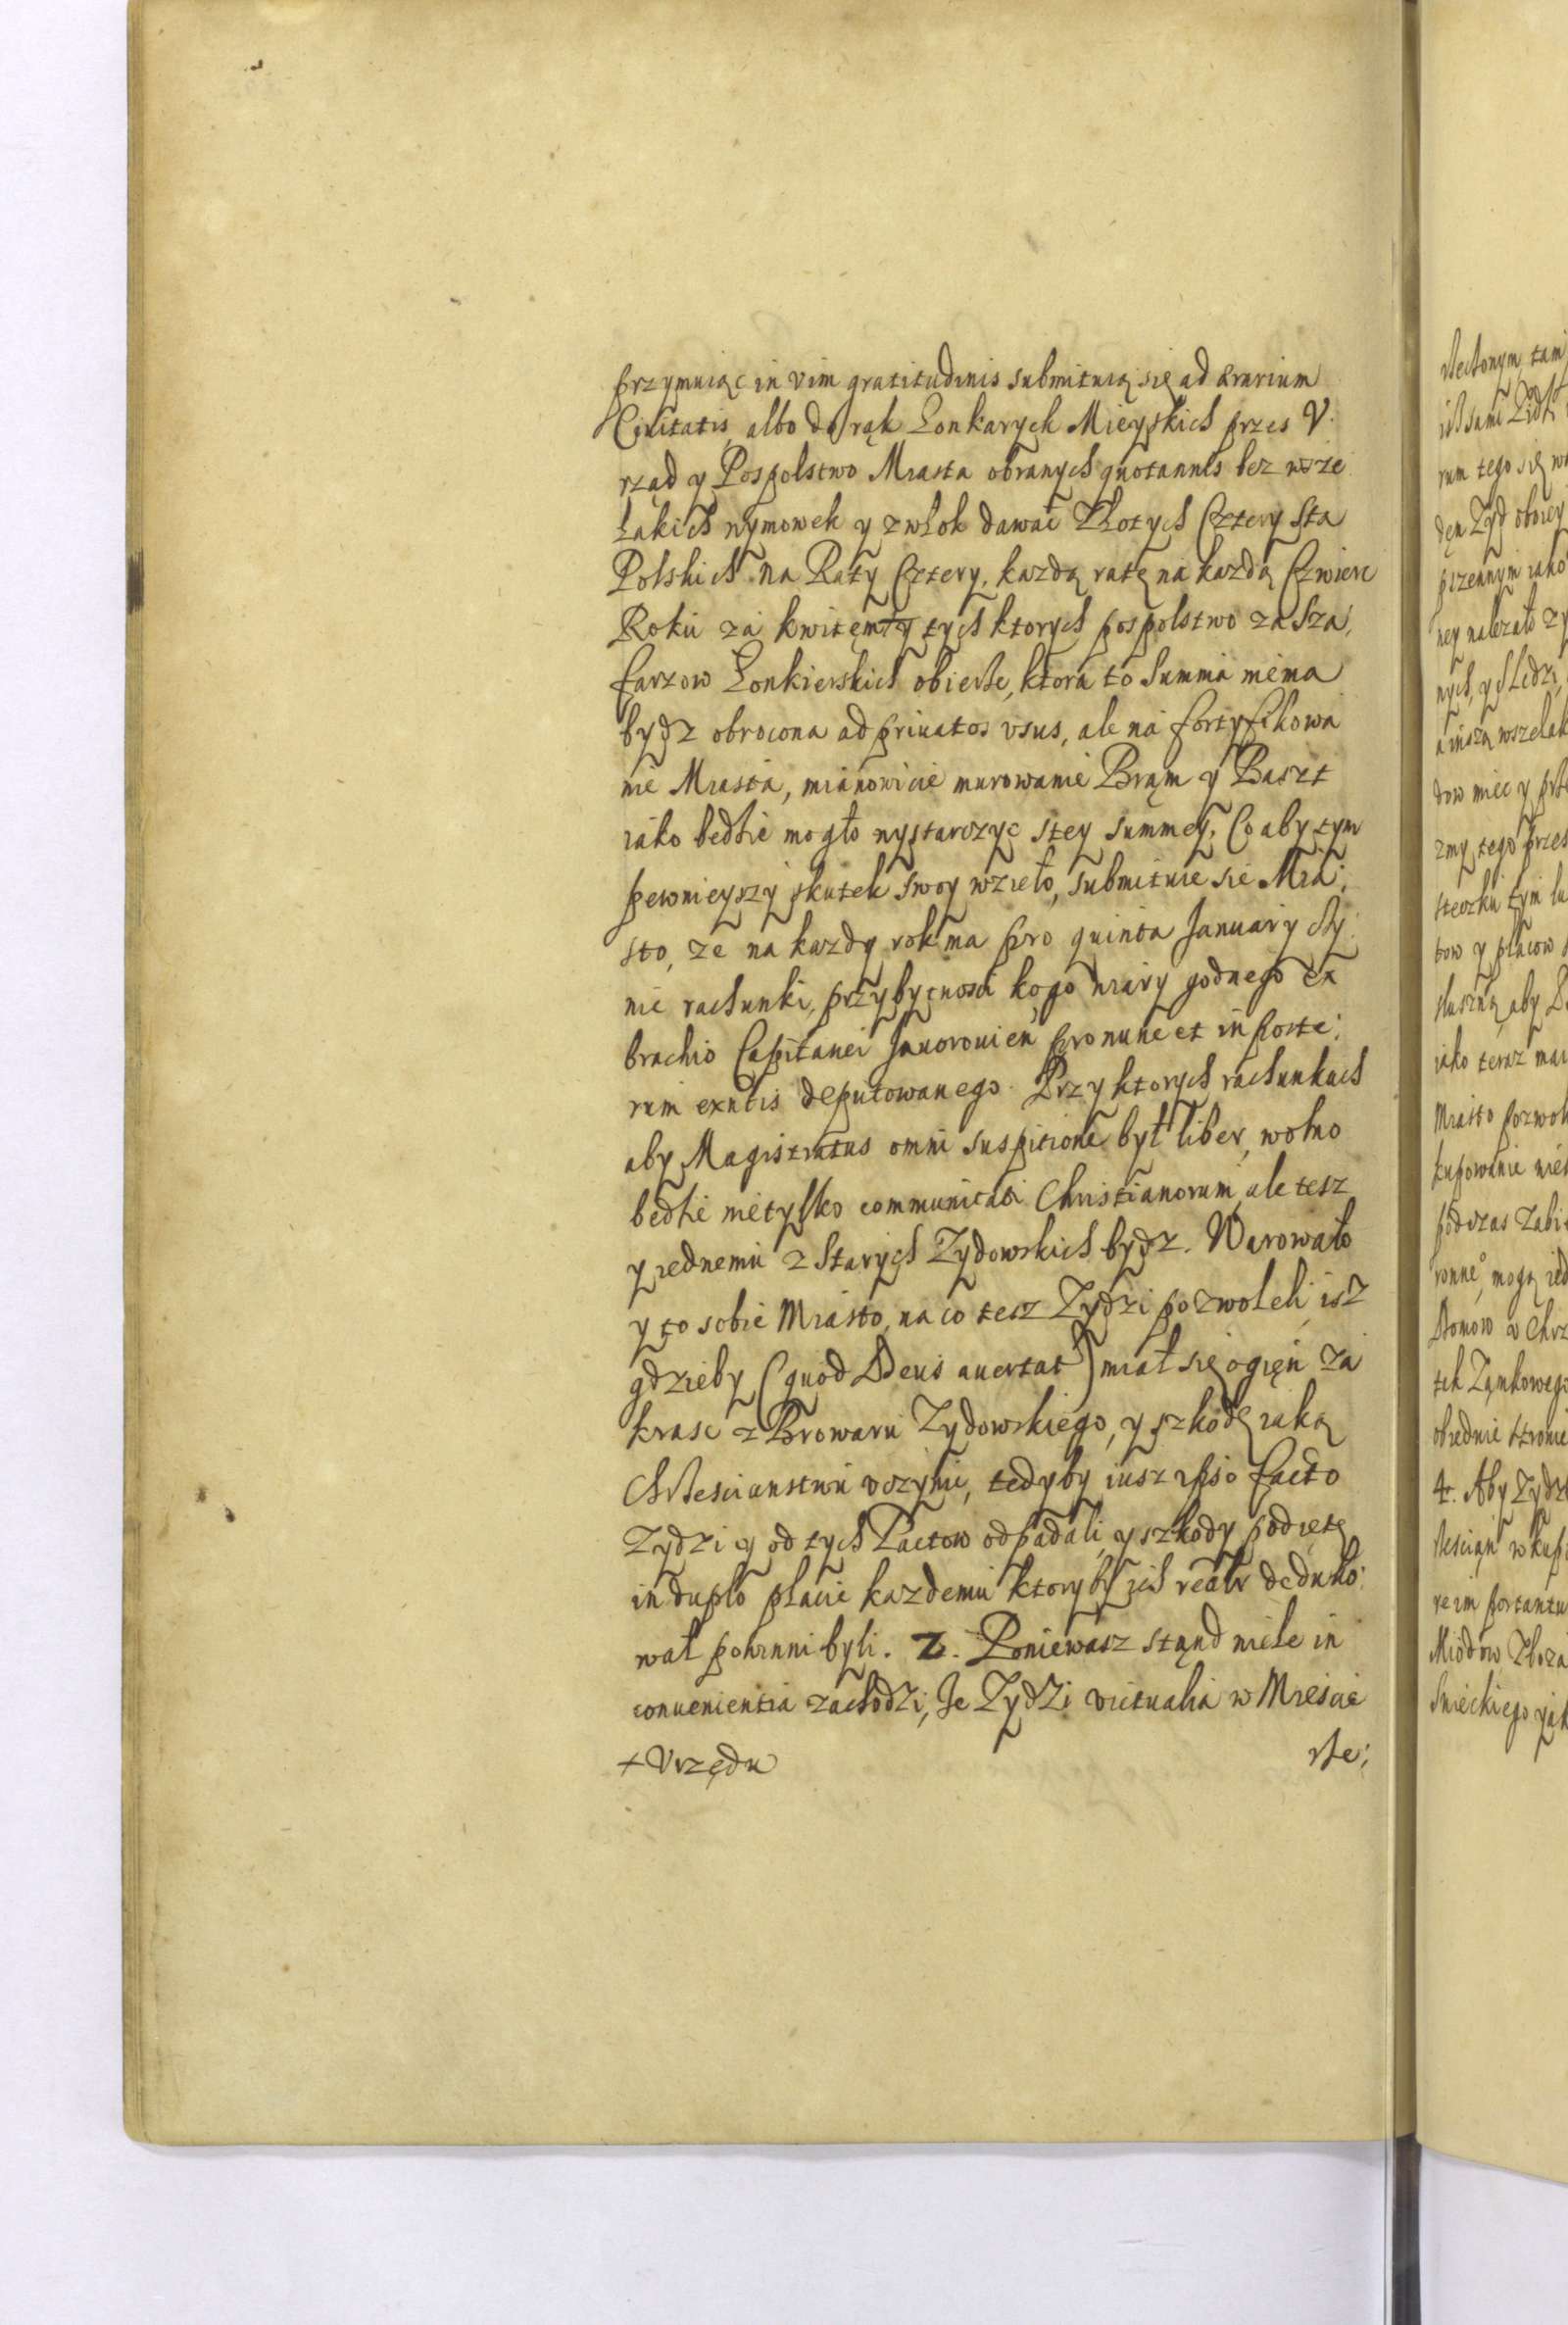 przymuiąc in vim gratitudinis submituią się ad ærarium
Ciuitatis albo do rąk Lonkarych Mieyskich przes V.
rząd y Pospolstwo Miasta obranych quotannis bez wsze
lakich wymowek y zwłok dawać Złotych Cztery Sta
Polskich na Raty Cztery, kazdą ratę na kazdą Czwierc
Roku za kwitem tych ktorych pospolstwo za Sza,
farzow Lonkierskich obierze, ktora to Summa niema
bydz obrocona ad priuatos vsus, ale na fortyfikowa
nie Miasta, mianowicie murowanie Bram y Baszt
iako bedzie mogło wystarczyc s tey summey, Co aby tym
pewnieyszy skutek swoy wzieło, submituie sie Mia,
sto, ze na kazdy rok ma pro quinta January
nie rachunki, przybytnosci kogo wiary godnego ex
brachio Capitanei Jauorouien pro nunc et in poste:
rum exntis deputowanego. Przy ktorych rachunkach
aby Magistratus omni suspitione był liber, wolno
bedzie nietylko communitati Christianorum, ale tesz
y iednemu z Starych Zydowskich bydz. Warowało
y to sobie Miasto, na co tesz Zydzi pozwoleli, isz
gdzieby (quod Deus auertat) miał się ogięn za
krasc z Browaru Zydowskiego, y szkodę iaką
Chrzescianstwu vczynic, tedyby iusz ipso facto
Zydzi y od tych Pactow odpadali, y szkody podięte
in duplo płacic kazdemu ktoryby ich realr deduko:
wał powinni byli. 2. Poniewasz stąnd wiele in
conuenientia zachodzi, Ze Zydzi victualia w Miescie
+ Vrzędu
rze:

rzectonym tam
isz sami Zidzi
rum tego się
den Zyd
pszennym iako
ney nalezało
nych, y sledzi,
a inszą wszelak
dow miec y
zmy tego przes
steczku tym
tow y placow
słuszną, aby
iako teraz
Miasto pozwol
kupowanie
podczas
ronne, mogą
Domow
tek Zamkowego
obiednie stronie
4. Aby Zydzi
rzescian w
re im portantu
Miodow,